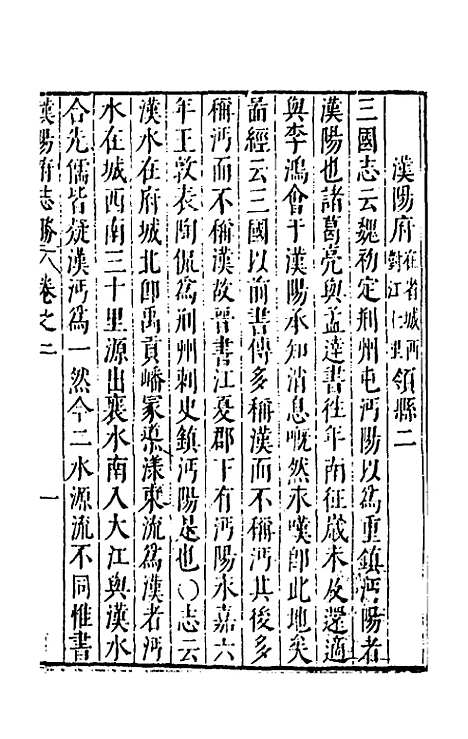 漢陽府在省城西對江仁里領縣二
三國志云魏初定荆州屯沔陽以爲重鎮沔陽者
漢陽也諸葛亮與孟達書往年南征歲末及還適
與李鴻會于漢陽承知消息慨然永嘆卽此地矣
啚經云三國以前書傳多稱漢而不稱沔其後多
稱沔而不稱漢故晉書江夏郡下有沔陽永嘉六
年王敦表陶侃爲荆州刺史鎮沔陽是也〇志云
漢水在府城北卽禹貢嶓冢導漾東流爲漢者沔
水在城西南三十里源出襄水南入大江與漢水
合先儒皆疑漢沔爲一然今二水源流不同惟書
漢陽府志勝 卷之二 一